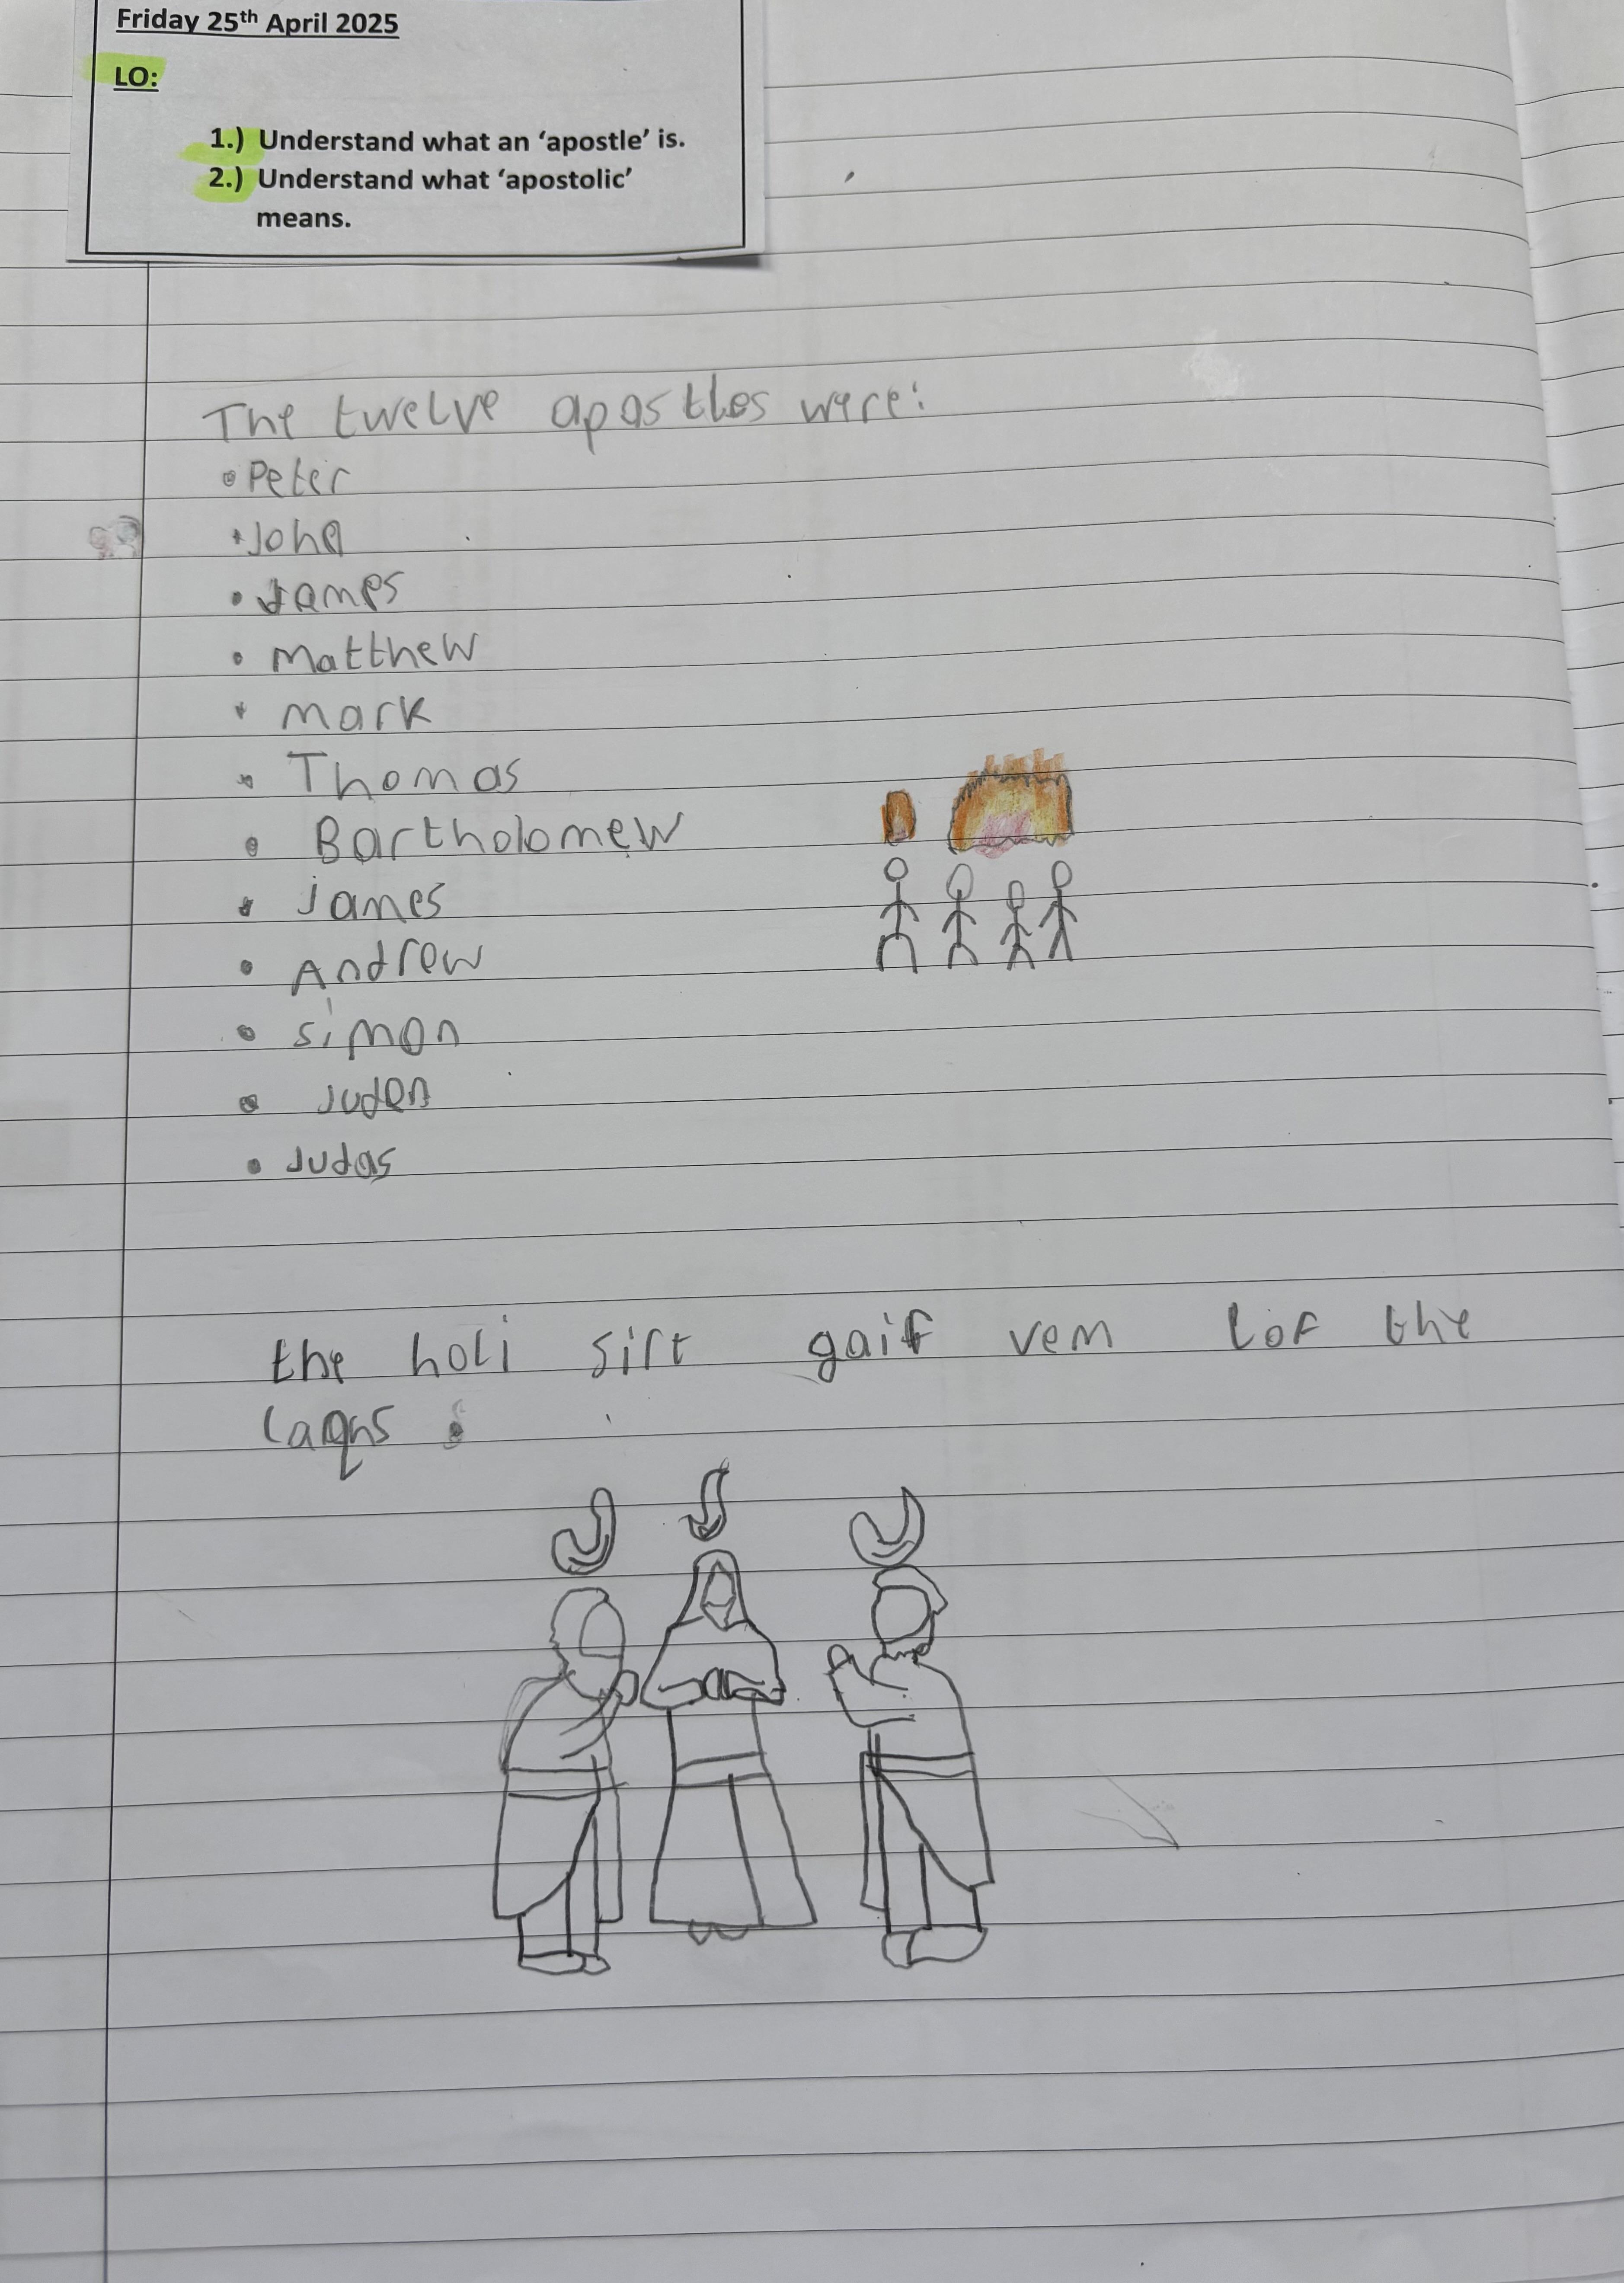 Friday 25th April 2025
LO:
1.) Understand what an ‘apostle’ is.
2.) Understand what ‘apostolic’
means.
The twelve apostles were:
• Peter
• John
• James
• Matthew
• mark
• Thomas
• Bartholomew
• james
• Andrew
• simon
• Juden
• Judas
the holi sirt gaif vem lof the